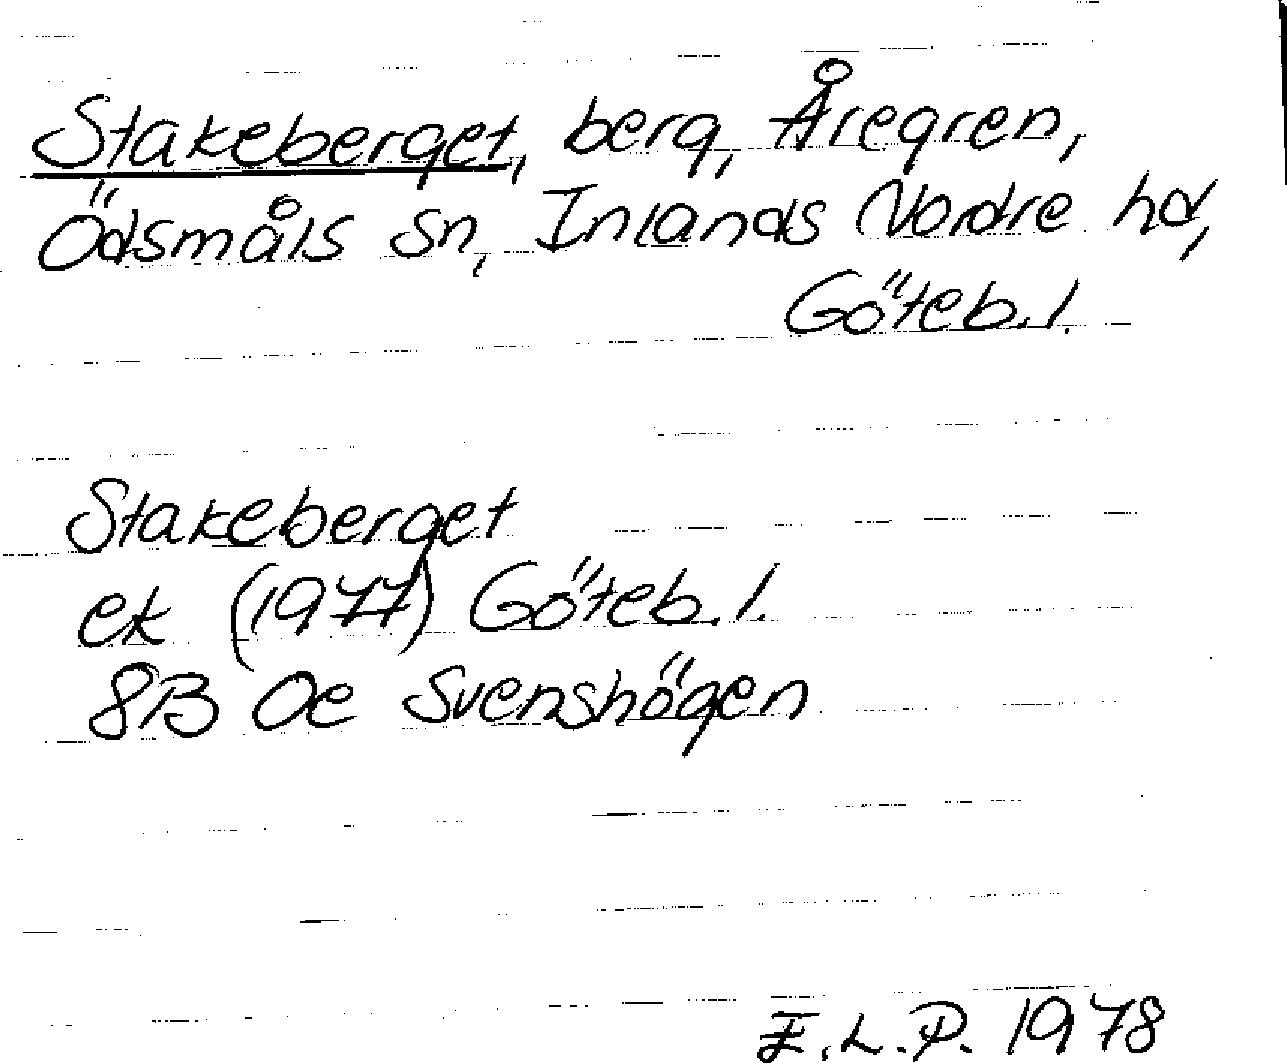 Stakeberget, berg, Åregren,
Ödsmåls sn, Inlands Nordre hd,
Göteb. l.
Stakeberget
ek (1977) Göteb. l.
8B 0e Svenshögen
E.L.P. 1978